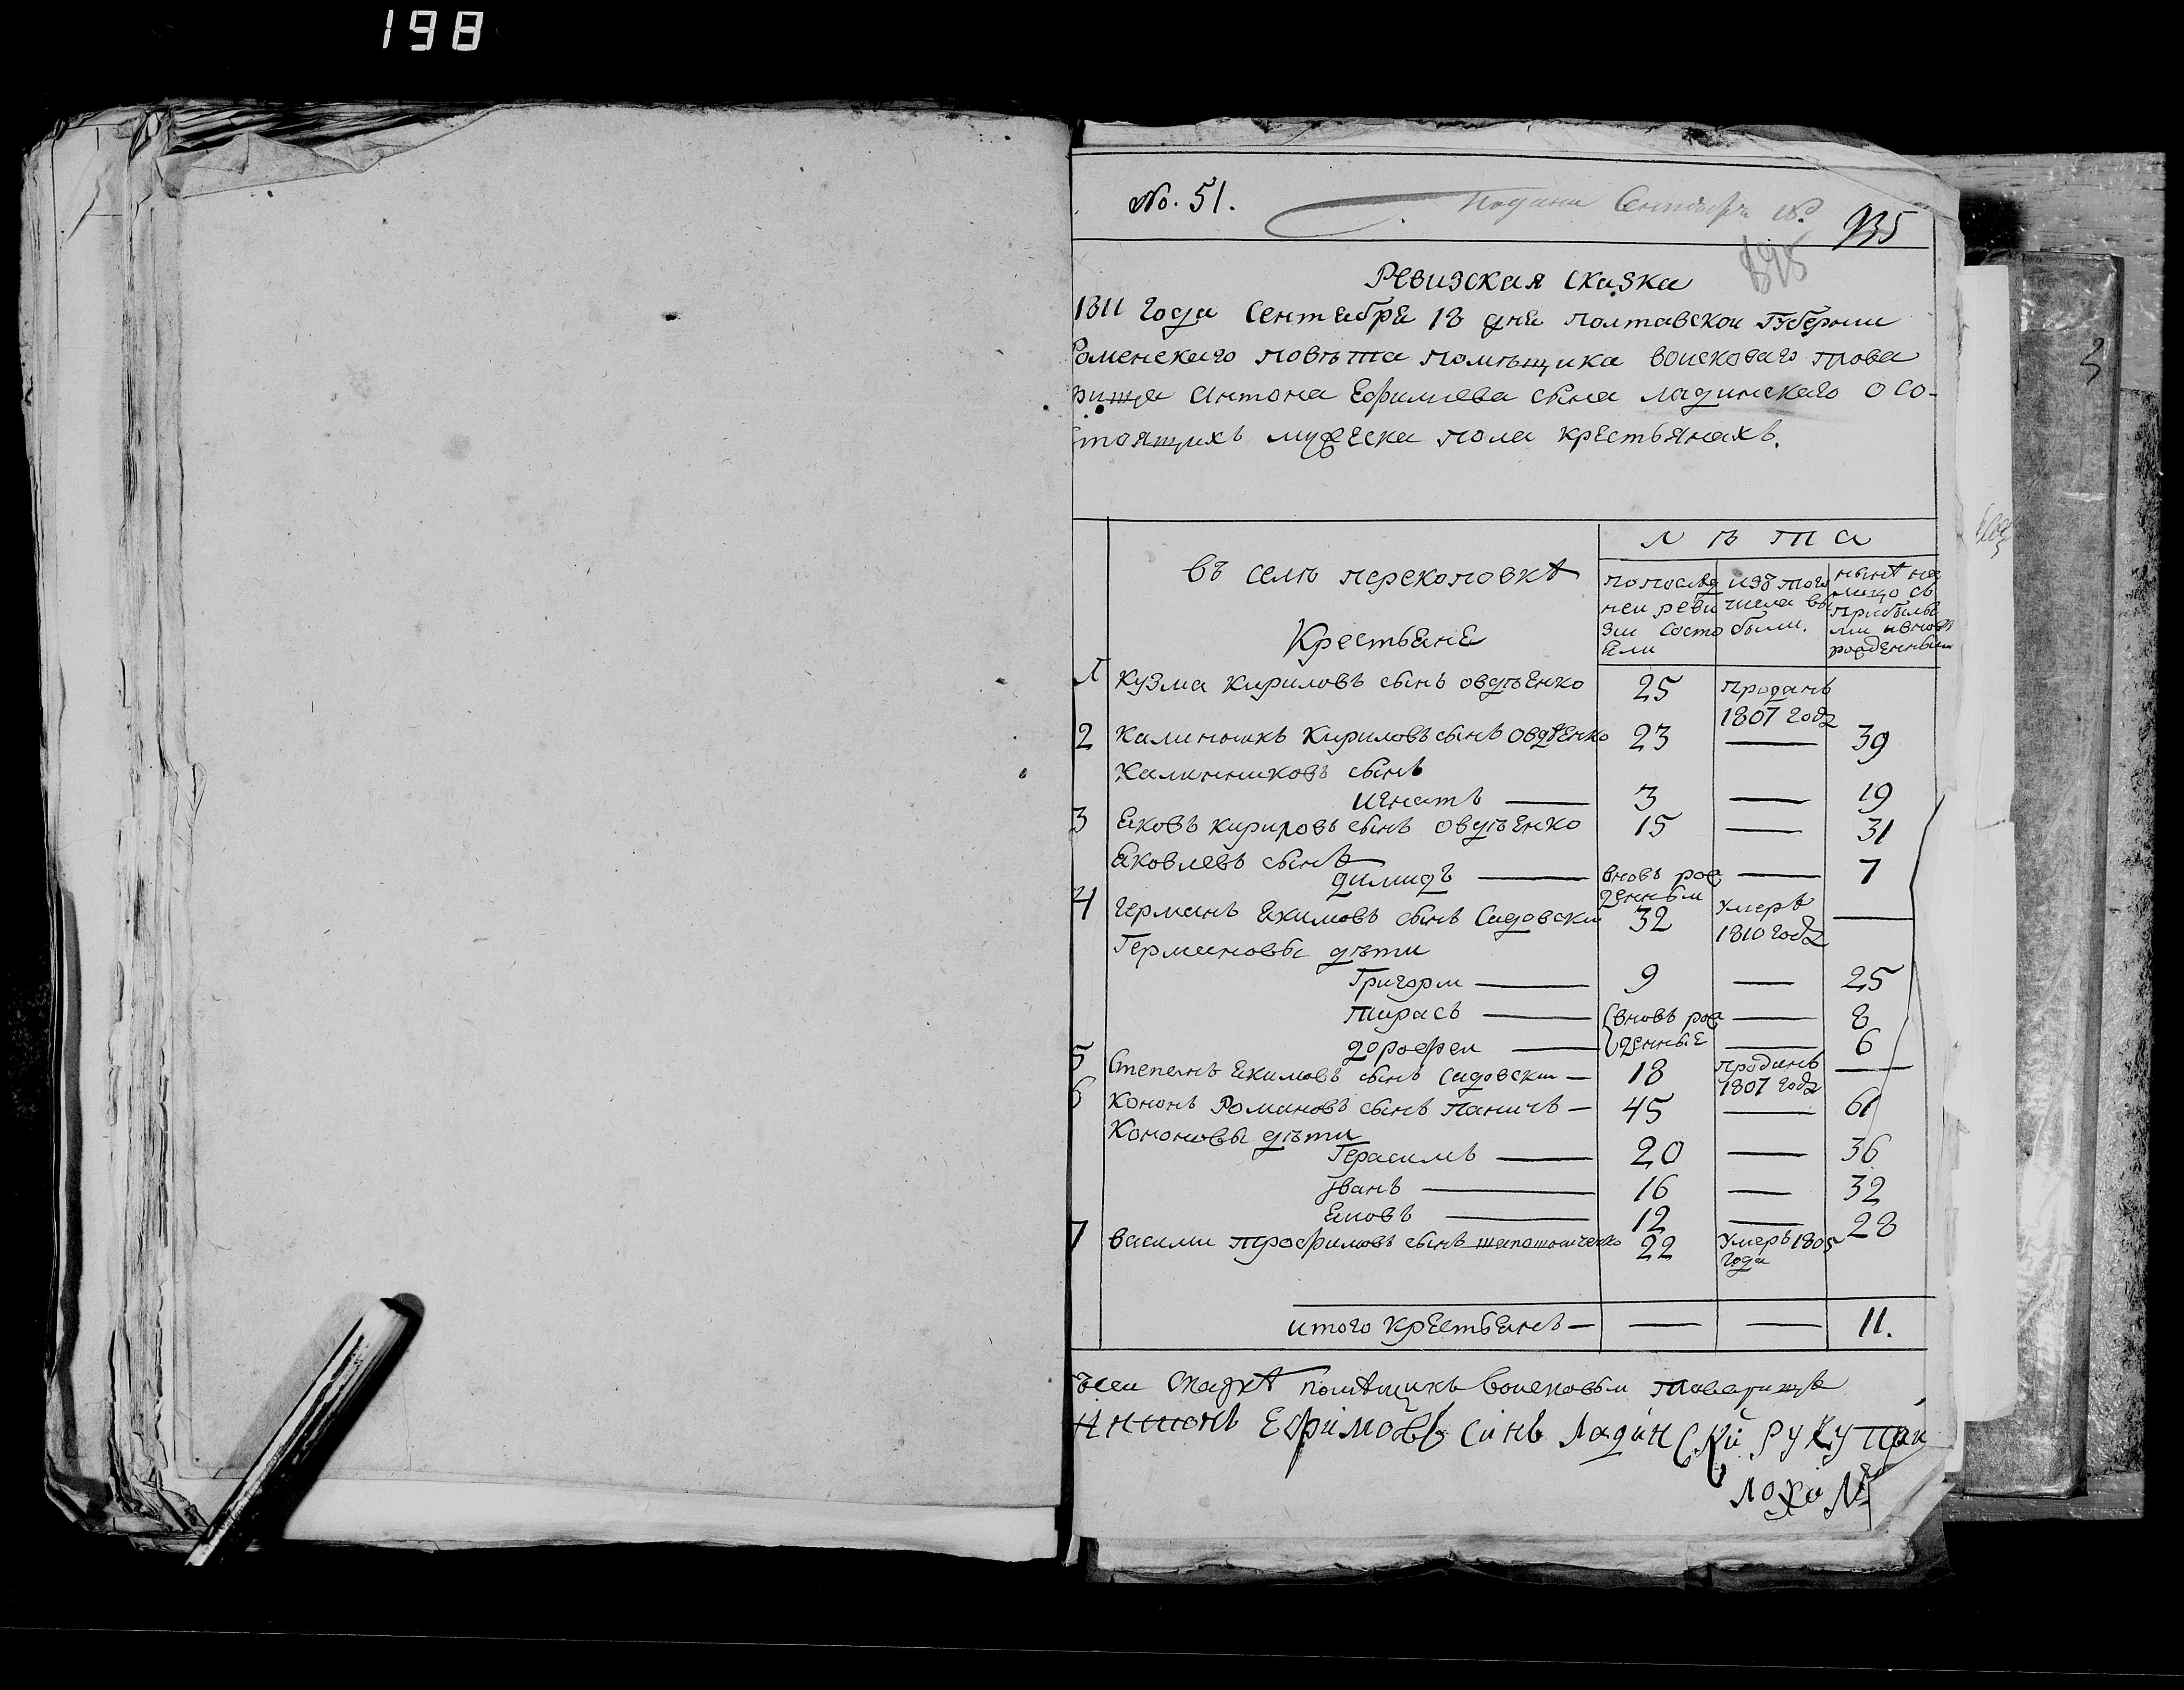 198
No. 51.
Подана Сентября 18.
935
895
Ревизская сказка
1811 года Сентября 18 дня Полтавской Губернии
Роменского повѣта помѣщика воискового това
рища Антона Ефимиева сына Ладинского о со-
стоящихъ мужеска пола крестьянахъ.
Лѣта
Въ селѣ Перекоповкѣ
Крестьяне
по послѣд ней ревизии состояли
изъ того числа выбыли.
нынѣ на лицо съ прибылыми и вновь рожденными
1 Кузма Кириловъ сынъ Овдѣенко 25 Проданъ 1807 года
2 Калиникъ Кириловъ сынъ Овдѣенко 23 — 39
Калинниковъ сынъ
Игнатъ — 3 — 19
3 Яковъ Кириловъ сынъ Овдѣенко 15 — 31
Яковлевъ сынъ
Димидъ — вновь рожденный — 7
4 Германъ Якимовъ сынъ Садовски 32 Умеръ 1810 года —
Германовы дѣти
Григори — 9 — 25
Тарасъ — вновь рож — 8
Дорофеи — денные — 6
5 Степанъ Якимовъ сынъ Садовски — 18 Проданъ 1807 года —
6 Кононъ Романовъ сынъ Паничъ — 45 — 61
Кононовы дѣти
Герасимъ — 20 — 36
Иванъ — 16 — 32
Яковъ — 12 — 28
7 Васили Трофимовъ сынъ 22 Умеръ 1805 года
Итого крестьянъ — — — 11.
Къ сей сказкѣ помѣщикъ воисковыи товарищъ
Антонъ Ефимовъ синъ Ладинскій руку при
ложилъ